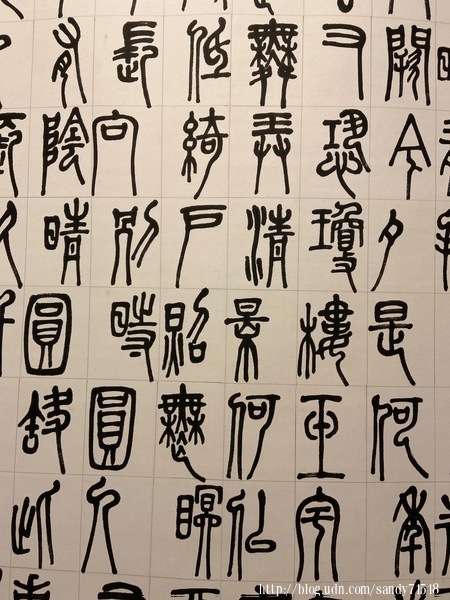 闕今夕是何年
又恐瓊樓玉宇
舞弄清景何似
低綺戶照無眠
長向別時圓人
有陰晴圓缺此
http://blog.udn.com/sandy71518